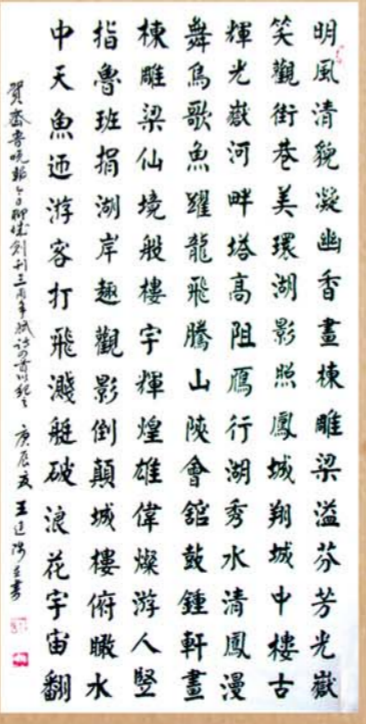 明風清貌凝幽香畫棟雕梁溢芬芳光嶽
笑觀街巷美環湖影照鳳城翔城中樓古
輝光嶽河畔塔高阻雁行湖秀水清鳳漫
舞鳥歌魚躍龍飛騰山陝會館鼓鍾軒畫
棟雕梁仙境般樓宇輝煌雄偉燦游人竪
指魯班捐湖岸趣觀影倒顛城樓俯瞰水
中天魚迊游客打飛濺艇破浪花宇宙翻
賀齊魯晚報今日聊城創刊三周年賦詩四首以紀之 庚辰夏 王廷海書